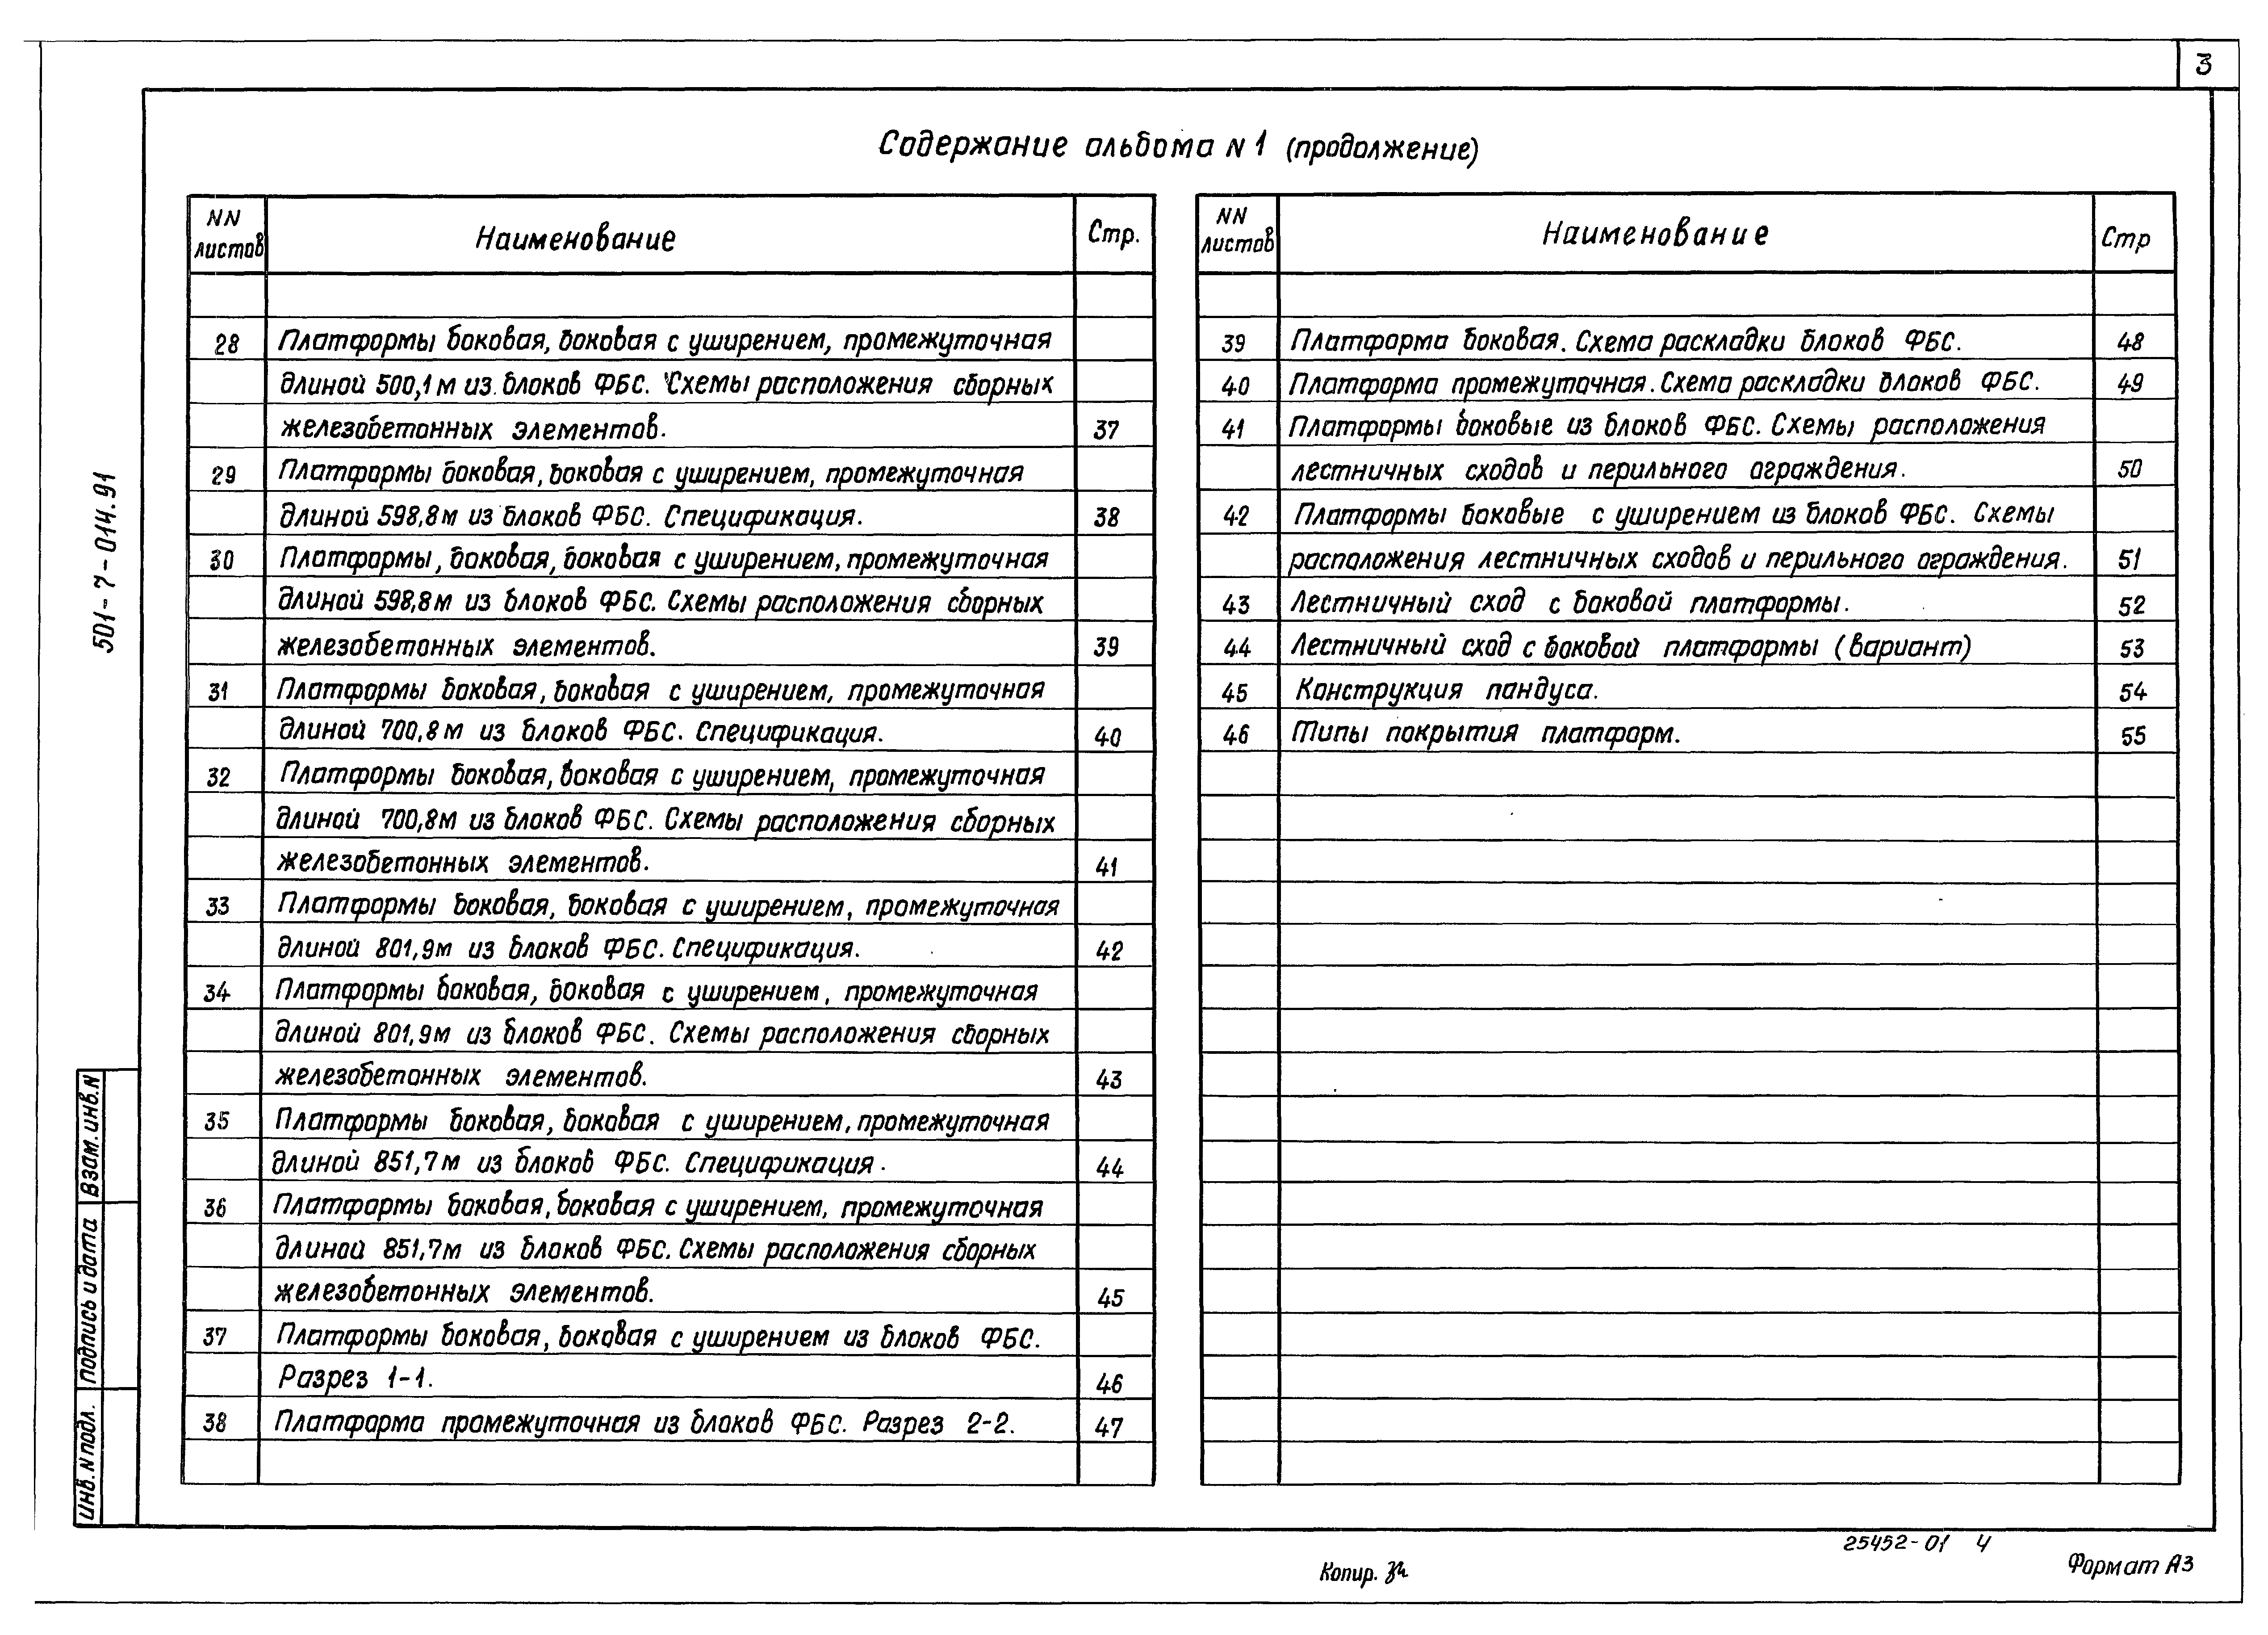 3
Содержание альбома N 1 (продолжение)
NN листов Наименование Стр.
28 Платформы боковая, боковая с уширением, промежуточная
длиной 500,1м из блоков ФБС. Схемы расположения сборных
железобетонных элементов. 37
29 Платформы боковая, боковая с уширением, промежуточная
длиной 598,8м из блоков ФБС. Спецификация. 38
30 Платформы, боковая, боковая с уширением, промежуточная
длиной 598,8м из блоков ФБС. Схемы расположения сборных
железобетонных элементов. 39
31 Платформы боковая, боковая с уширением, промежуточная
длиной 700,8м из блоков ФБС. Спецификация. 40
32 Платформы боковая, боковая с уширением, промежуточная
длиной 700,8м из блоков ФБС. Схемы расположения сборных
железобетонных элементов. 41
33 Платформы боковая, боковая с уширением, промежуточная
длиной 801,9м из блоков ФБС. Спецификация. 42
34 Платформы боковая, боковая с уширением, промежуточная
длиной 801,9м из блоков ФБС. Схемы расположения сборных
железобетонных элементов. 43
35 Платформы боковая, боковая с уширением, промежуточная
длиной 851,7м из блоков ФБС. Спецификация. 44
36 Платформы боковая, боковая с уширением, промежуточная
длиной 851,7м из блоков ФБС. Схемы расположения сборных
железобетонных элементов. 45
37 Платформы боковая, боковая с уширением из блоков ФБС.
Разрез 1-1. 46
38 Платформа промежуточная из блоков ФБС. Разрез 2-2. 47
NN листов Наименование Стр
39 Платформа боковая. Схема раскладки блоков ФБС. 48
40 Платформа промежуточная. Схема раскладки блоков ФБС. 49
41 Платформы боковые из блоков ФБС. Схемы расположения
лестничных сходов и перильного ограждения. 50
42 Платформы боковые с уширением из блоков ФБС. Схемы
расположения лестничных сходов и перильного ограждения. 51
43 Лестничный сход с боковой платформы. 52
44 Лестничный сход с боковой платформы (вариант) 53
45 Конструкция пандуса. 54
46 Типы покрытия платформ. 55
501-7-014.91
Взам. инв. N
Подпись и дата
Инв. N подл.
25452-01 4
Копир.
Формат А3